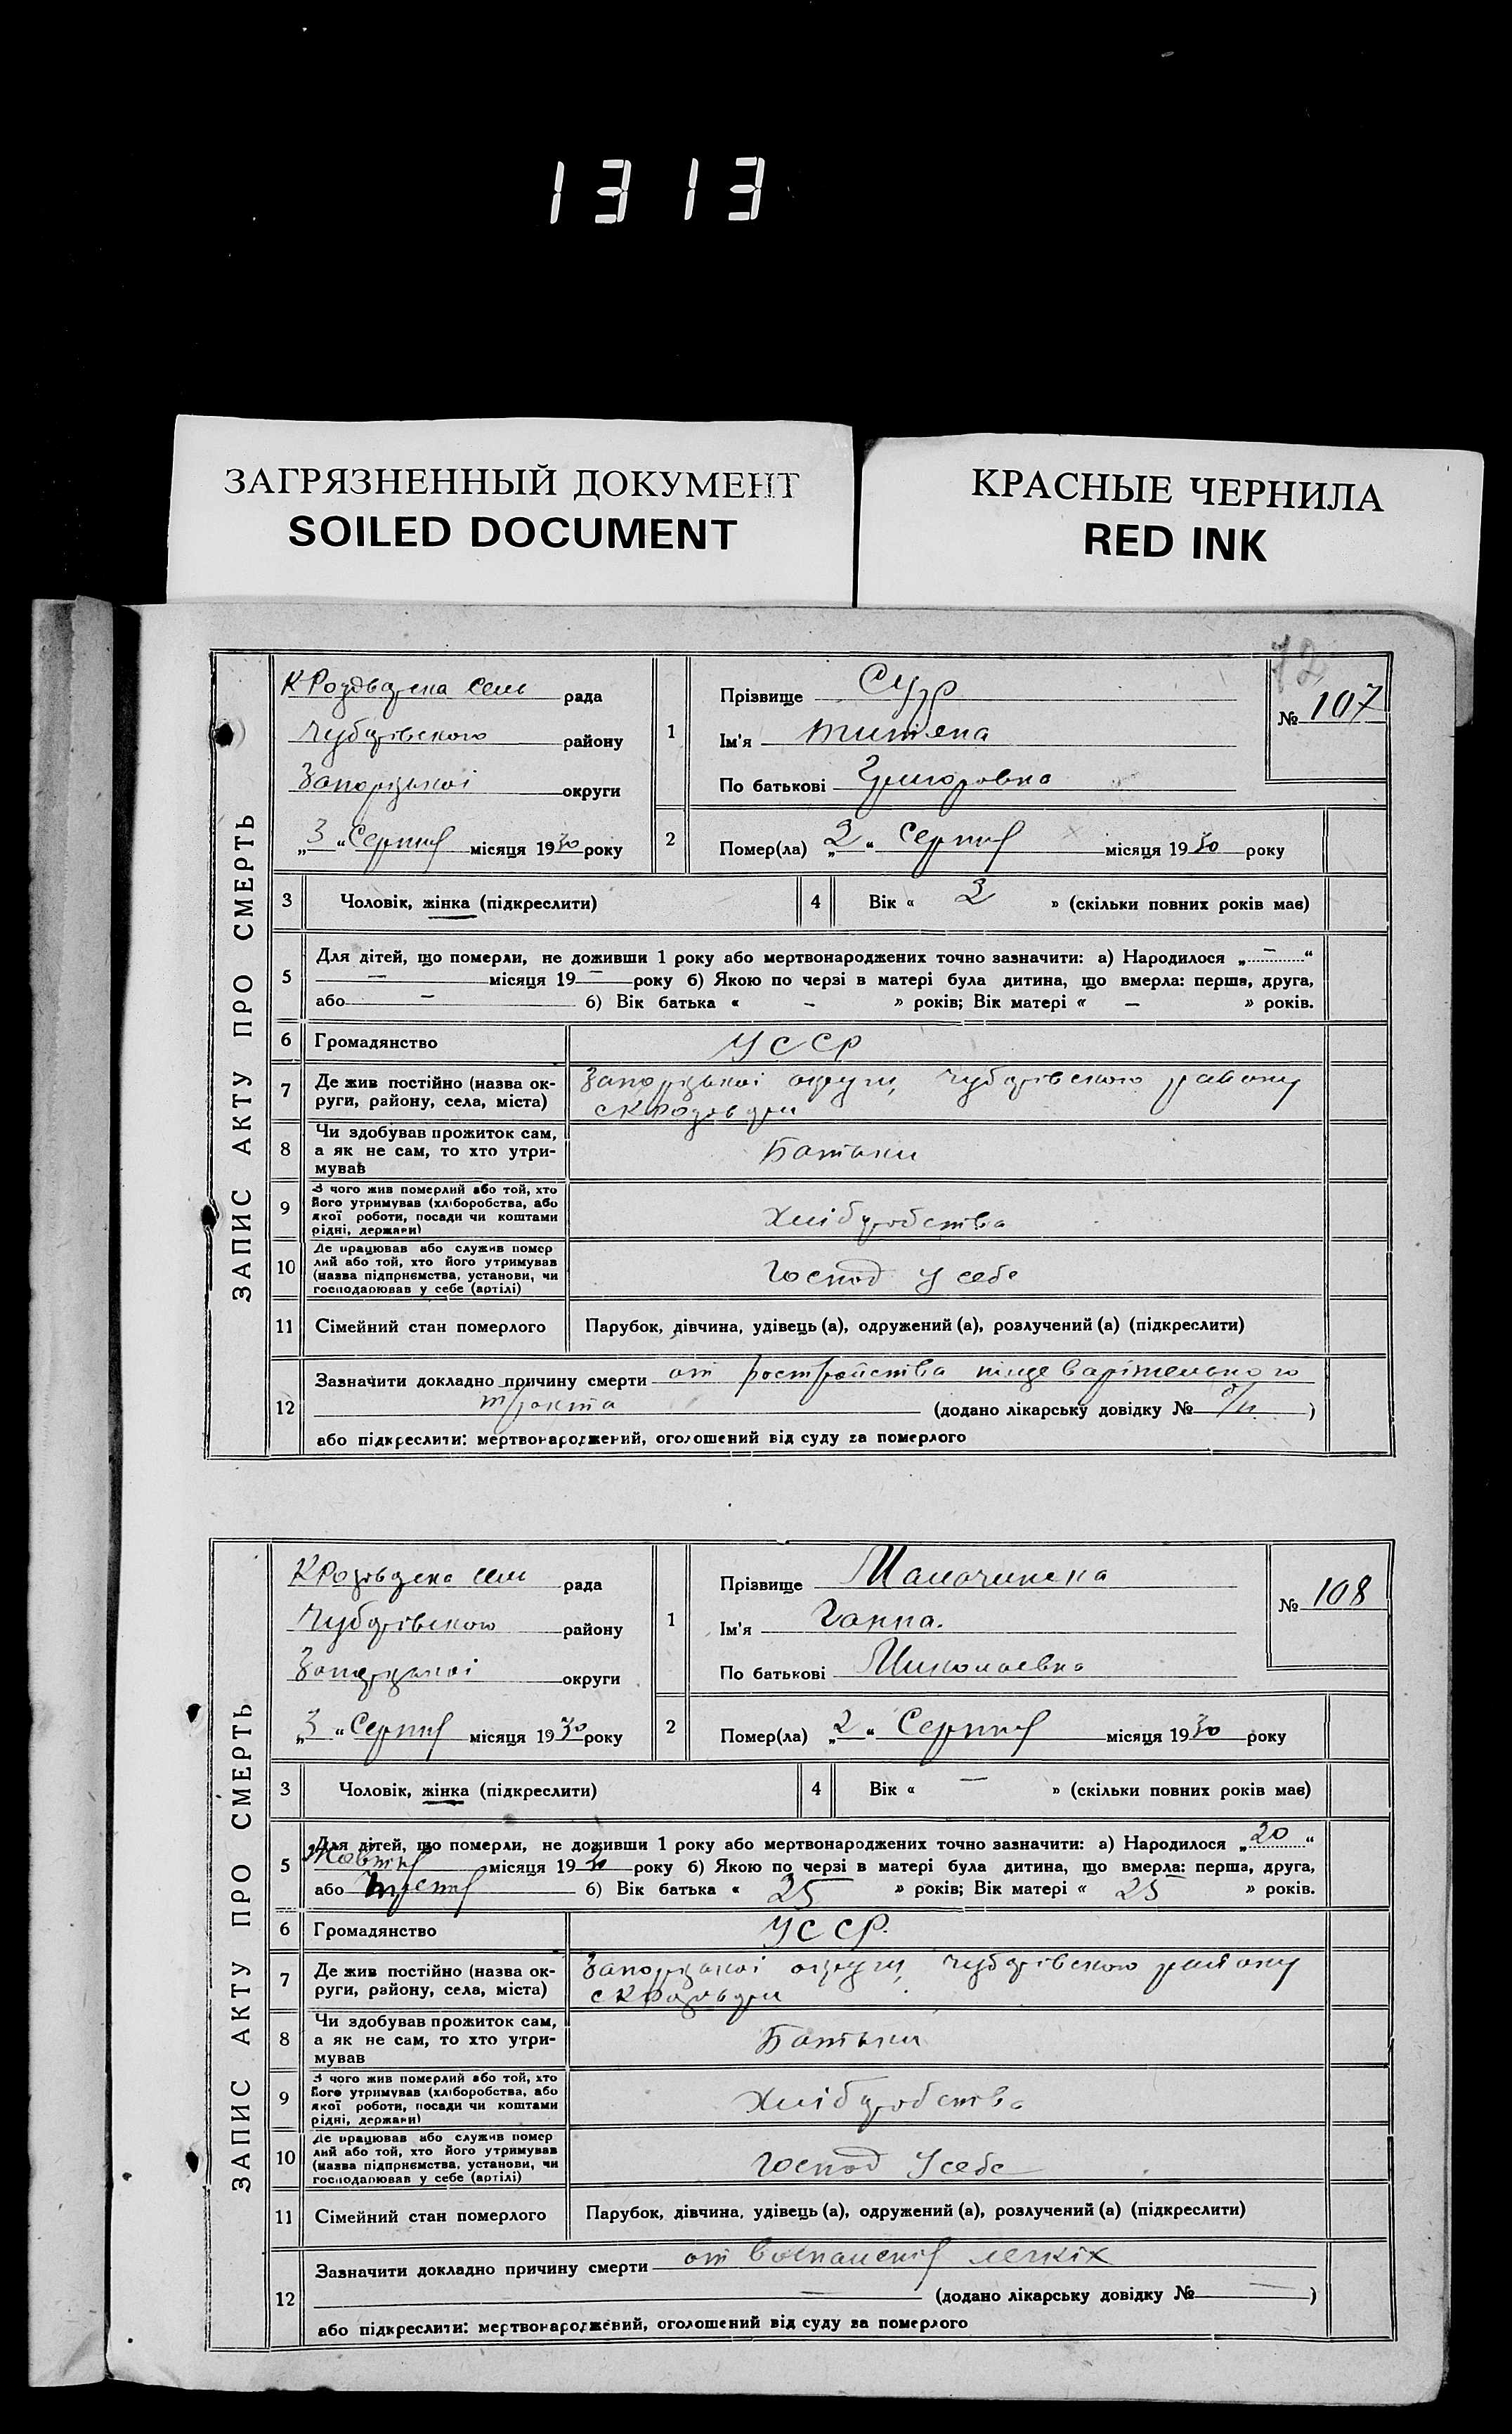 1313
ЗАГРЯЗНЕННЫЙ ДОКУМЕНТ
SOILED DOCUMENT
КРАСНЫЕ ЧЕРНИЛА
RED INK
72
ЗАПИС АКТУ ПРО СМЕРТЬ
сель рада
Чубарівського району
Запоріжької округи
„3“ Серпня місяця 1930 року
1
Прізвище
Ім'я Титяна
По батькові Григоровна
№ 107
2 Помер(ла) „2“ Серпня місяця 1930 року
3 Чоловік, жінка (підкреслити)
4 Вік « 2 » (скільки повних років має)
5 Для дітей, що померли, не доживши 1 року або мертвонароджених точно зазначити: а) Народилося „ — “
— місяця 19 — року б) Якою по черзі в матері була дитина, що вмерла: перша, друга,
або — б) Вік батька « – » років; Вік матері « – » років.
6 Громадянство УССР
7 Де жив постійно (назва округи, району, села, міста) Запоріжькоі округи, Чубарівського району
8 Чи здобував прожиток сам,
а як не сам, то хто утри-
мував Батьки
9 З чого жив померлий або той, хто
його утримував (хліборобства, або
якої роботи, посади чи коштами
рідні, держави) Хліборобства
10 Де працював або служив помер
лий або той, хто його утримував
(назва підприємства, установи, чи
господарював у себе (артілі) Господ у себе
11 Сімейний стан померлого Парубок, дівчина, удівець (а), одружений (а), розлучений (а) (підкреслити)
12 Зазначити докладно причину смерти от ростройства піщеварітельного
тракта (додано лікарську довідку № б/н )
або підкреслити: мертвонароджений, оголошений від суду за померлого
ЗАПИС АКТУ ПРО СМЕРТЬ
сель рада
Чубарівського району
Запоріжькоі округи
„3“ Серпня місяця 1930 року
1
Прізвище
Ім'я Ганна.
По батькові Миколаевна
№ 108
2 Помер(ла) „2“ Серпня місяця 1930 року
3 Чоловік, жінка (підкреслити)
4 Вік « — » (скільки повних років має)
5 Для дітей, що померли, не доживши 1 року або мертвонароджених точно зазначити: а) Народилося „20“
Жовтня місяця 19 року б) Якою по черзі в матері була дитина, що вмерла: перша, друга,
або третя б) Вік батька « 25 » років; Вік матері « 25 » років.
6 Громадянство УССР.
7 Де жив постійно (назва округи, району, села, міста) Запоріжькоі округи, Чубарівського району
8 Чи здобував прожиток сам,
а як не сам, то хто утри-
мував Батьки
9 З чого жив померлий або той, хто
його утримував (хліборобства, або
якої роботи, посади чи коштами
рідні, держави) Хліборобства
10 Де працював або служив помер
лий або той, хто його утримував
(назва підприємства, установи, чи
господарював у себе (артілі) Господ у себе
11 Сімейний стан померлого Парубок, дівчина, удівець (а), одружений (а), розлучений (а) (підкреслити)
12 Зазначити докладно причину смерти от воспаленія легкіх
— (додано лікарську довідку № — )
або підкреслити: мертвонароджений, оголошений від суду за померлого